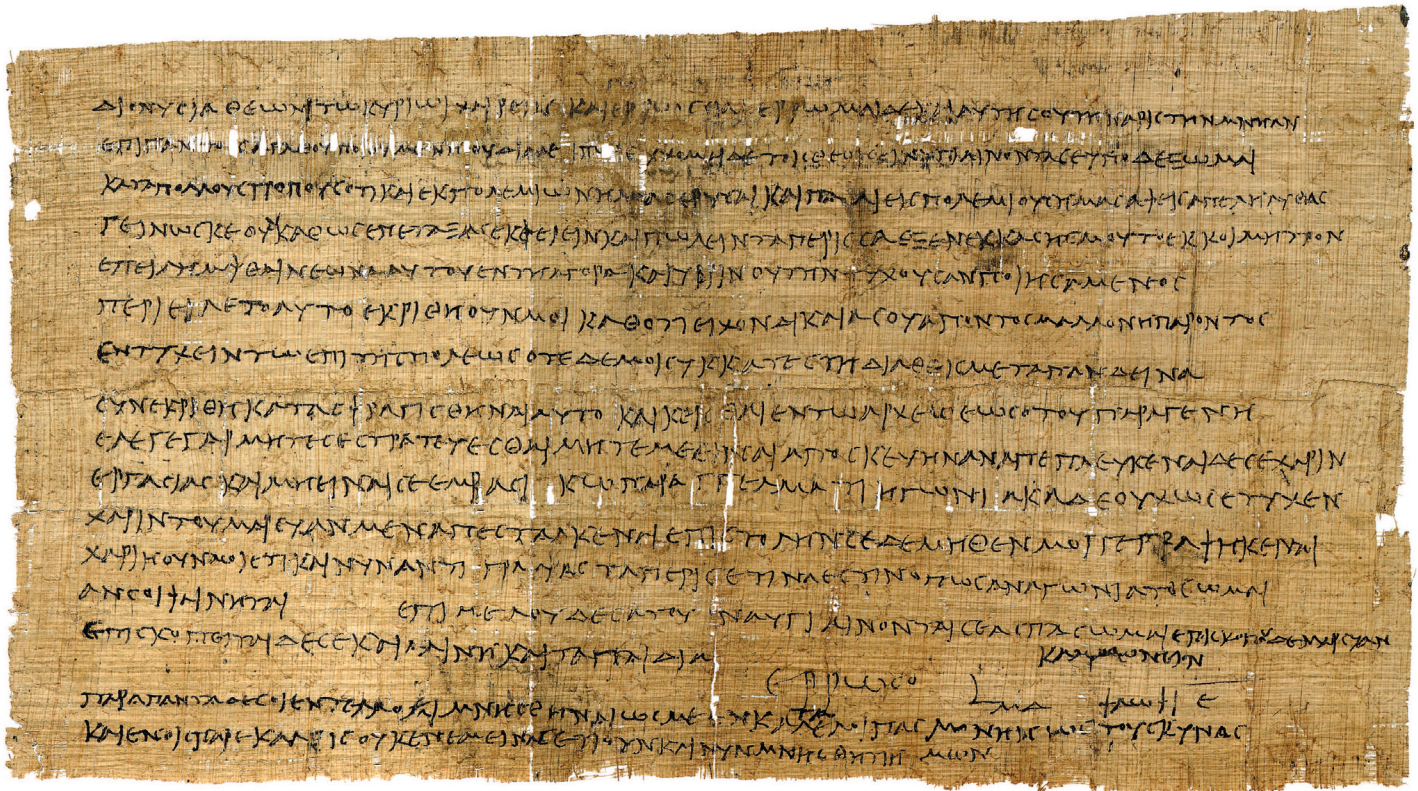 ΔΙΟΝΥCΙΑ ΘΕΩΝΙ ΤΩΙ ΚΥΡΙΩΙ ΧΑΙΡΕΙΝ ΚΑΙ ΕΡΡΩCΘΑΙ ΕΡΡΩΜΑΙ ΔΕ ΚΑΙ ΑΥΤΗ CΟΥ ΤΗΝ ΑΡΙCΤΗΝ ΜΝΗΑΝ
ΕΠΙ ΠΑΝΤΟC ΑΓΑΘΟΥ ΠΟΙΟΥΜΕΝΗ ΟΥ ΔΙΑΛΕΙΠΩ ΕΥΧΟΜΑΙ ΔΕ ΤΟΙC ΘΕΟΙC ΙΝΑ ΥΓΙΑΙΝΟΝΤΑ CΕ ΥΠΟΔΕΞΩΜΑΙ
ΚΑΤΑ ΠΟΛΛΟΥC ΤΡΟΠΟΥC ΟΤΙ ΚΑΙ ΕΚ ΠΟΛΕΜΙΩΝ ΗΜΑC ΕΡΥCΑΙ ΚΑΙ ΠΑΛΙ ΕΙC ΠΟΛΕΜΙΟΥC ΗΜΑC ΑΦΕΙC ΑΠΕΛΗΛΥΘΑC
ΓΕΙΝΩCΚΕ ΟΥΝ ΚΑΘΩC ΕΠΕΤΑΞΑC ΕΚΦΕΙΕΙΝ ΚΑΙ ΠΩΛΕΙΝ ΤΑ ΠΕΡΙCCΑ ΕΞΕΝΕΚΚΑCΗC ΜΟΥ ΤΟ ΕΚΚΟΙΜΗΤΡΟΝ
ΕΠΕΙΛΗΜΦΘΑΙ ΝΕΩΝΑ ΑΥΤΟΥ ΕΝ ΤΗ ΑΓΟΡΑ ΚΑΙ ΥΒΡΙΝ ΟΥ ΤΗΝ ΤΥΧΟΥCΑΝ ΠΟΙΗCΑΜΕΝΟC
ΠΕΡΙΕΙΛΕΤΟ ΑΥΤΟ ΕΚΡΙΘΗ ΟΥΝ ΜΟΙ ΚΑΘΟΤΙ ΕΙΧΟΝ ΔΙΚΑΙΑ CΟΥ ΑΠΟΝΤΟC ΜΑΛΛΟΝ Η ΠΑΡΟΝΤΟC
ΕΝΤΥΧΕΙΝ ΤΩ ΕΠΙ ΤΗC ΠΟΛΕΩC ΟΤΕ ΔΕ ΜΟΙ CΥΚΚΑΤΕCΤΗ ΔΙΑΘΕΙC ΜΕ ΤΑ ΠΑΝΔΕΙΝΑ
CΥΝΕΚΡΙΘΗ ΚΑΤΑCΦΡΑΓΙCΘΗΝΑΙ ΑΥΤΟ ΚΑΙ ΚΕΙCΘΑΙ ΕΝ ΤΩ ΑΡΧΕΙΩ ΕΩC ΟΤΟΥ ΠΑΡΑΓΕΝΗ
ΕΛΕΓΕ ΓΑΡ ΜΗΤΕ CΕ CΤΡΑΤΕΥΕCΘΑΙ ΜΗΤΕ ΜΕ ΕΙΝΑΙ ΑΠΟCΚΕΥΗΝ ΑΝΑΠΕΠΛΕΥΚΕΝΑΙ ΔΕ CΕ ΧΑΡΙΝ
ΕΡΓΑCΙΑC ΚΑΙ ΜΗ ΕΙΝΑΙ CΕ ΗΓΩΝΙΑΚΑ ΔΕ ΟΥΧ ΩC ΕΤΥΧΕΝ
ΧΑΡΙΝ ΤΟΥ ΜΑΡCΥΑΝ ΜΕΝ ΑΠΕCΤΑΛΚΕΝΑΙ ΕΠΙCΤΟΛΗΝ CΕ ΔΕ ΜΗΘΕΝ ΜΟΙ ΓΕΓΡΑΦΗΚΕΝΑΙ
ΧΑΡΙΗ ΟΥΝ ΜΟΙ ΕΤΙ ΚΑΙ ΝΥΝ ΑΝΤΙΓΡΑΨΑC ΤΑ ΠΕΡΙ CΕ ΤΙΝΑ ΕCΤΙΝ ΟΠΩC ΑΝΑΓΩΝΙΑΤΟC ΩΜΑΙ
ΑΝ CΟΙ ΦΑΙΝΗΤΑΙ ΕΠΙΜΕΛΟΥ ΔΕ CΑΤΟΥ ΙΝ ΥΓΙΑΙΝΟΝΤΑ CΕ ΑCΠΑCΩΜΑΙ ΕΠΙCΚΟΠΟΥ ΔΕ ΜΑΡCΥΑΝ
ΕΠΙCΚΟΠΕΙΤΑΙ ΔΕ CΕ ΚΑΙ ΑΛΙΝΗ ΚΑΙ ΤΑ ΠΑΙΔΙΑ ΚΑΙ ΑΜΜΩΝΙΝ
ΕΡΡΩCΟ L ΜΔ ΦΑΩΦΙ Ε
ΠΑΡΑ ΠΑΝΤΑ ΔΕ CΟΙ ΕΝΤΕΛΛΟΜΑΙ ΜΝΗCΘΗΝΑΙ ΩC ΜΕ ΕΝΚΑΤΕΛΟΙΠΑC ΜΟΝΗΝ ΩC ΤΟΥC ΚΥΝΑC
ΚΑΙ ΕΝ ΟΙC ΠΑΡΕΚΑΛΕΙC ΟΥΚ ΕΝΕΜΕΙΝΑC ΕΤΙ ΟΥΝ ΚΑΙ ΝΥΝ ΜΝΗCΘΗΤΙ ΗΜΩΝ